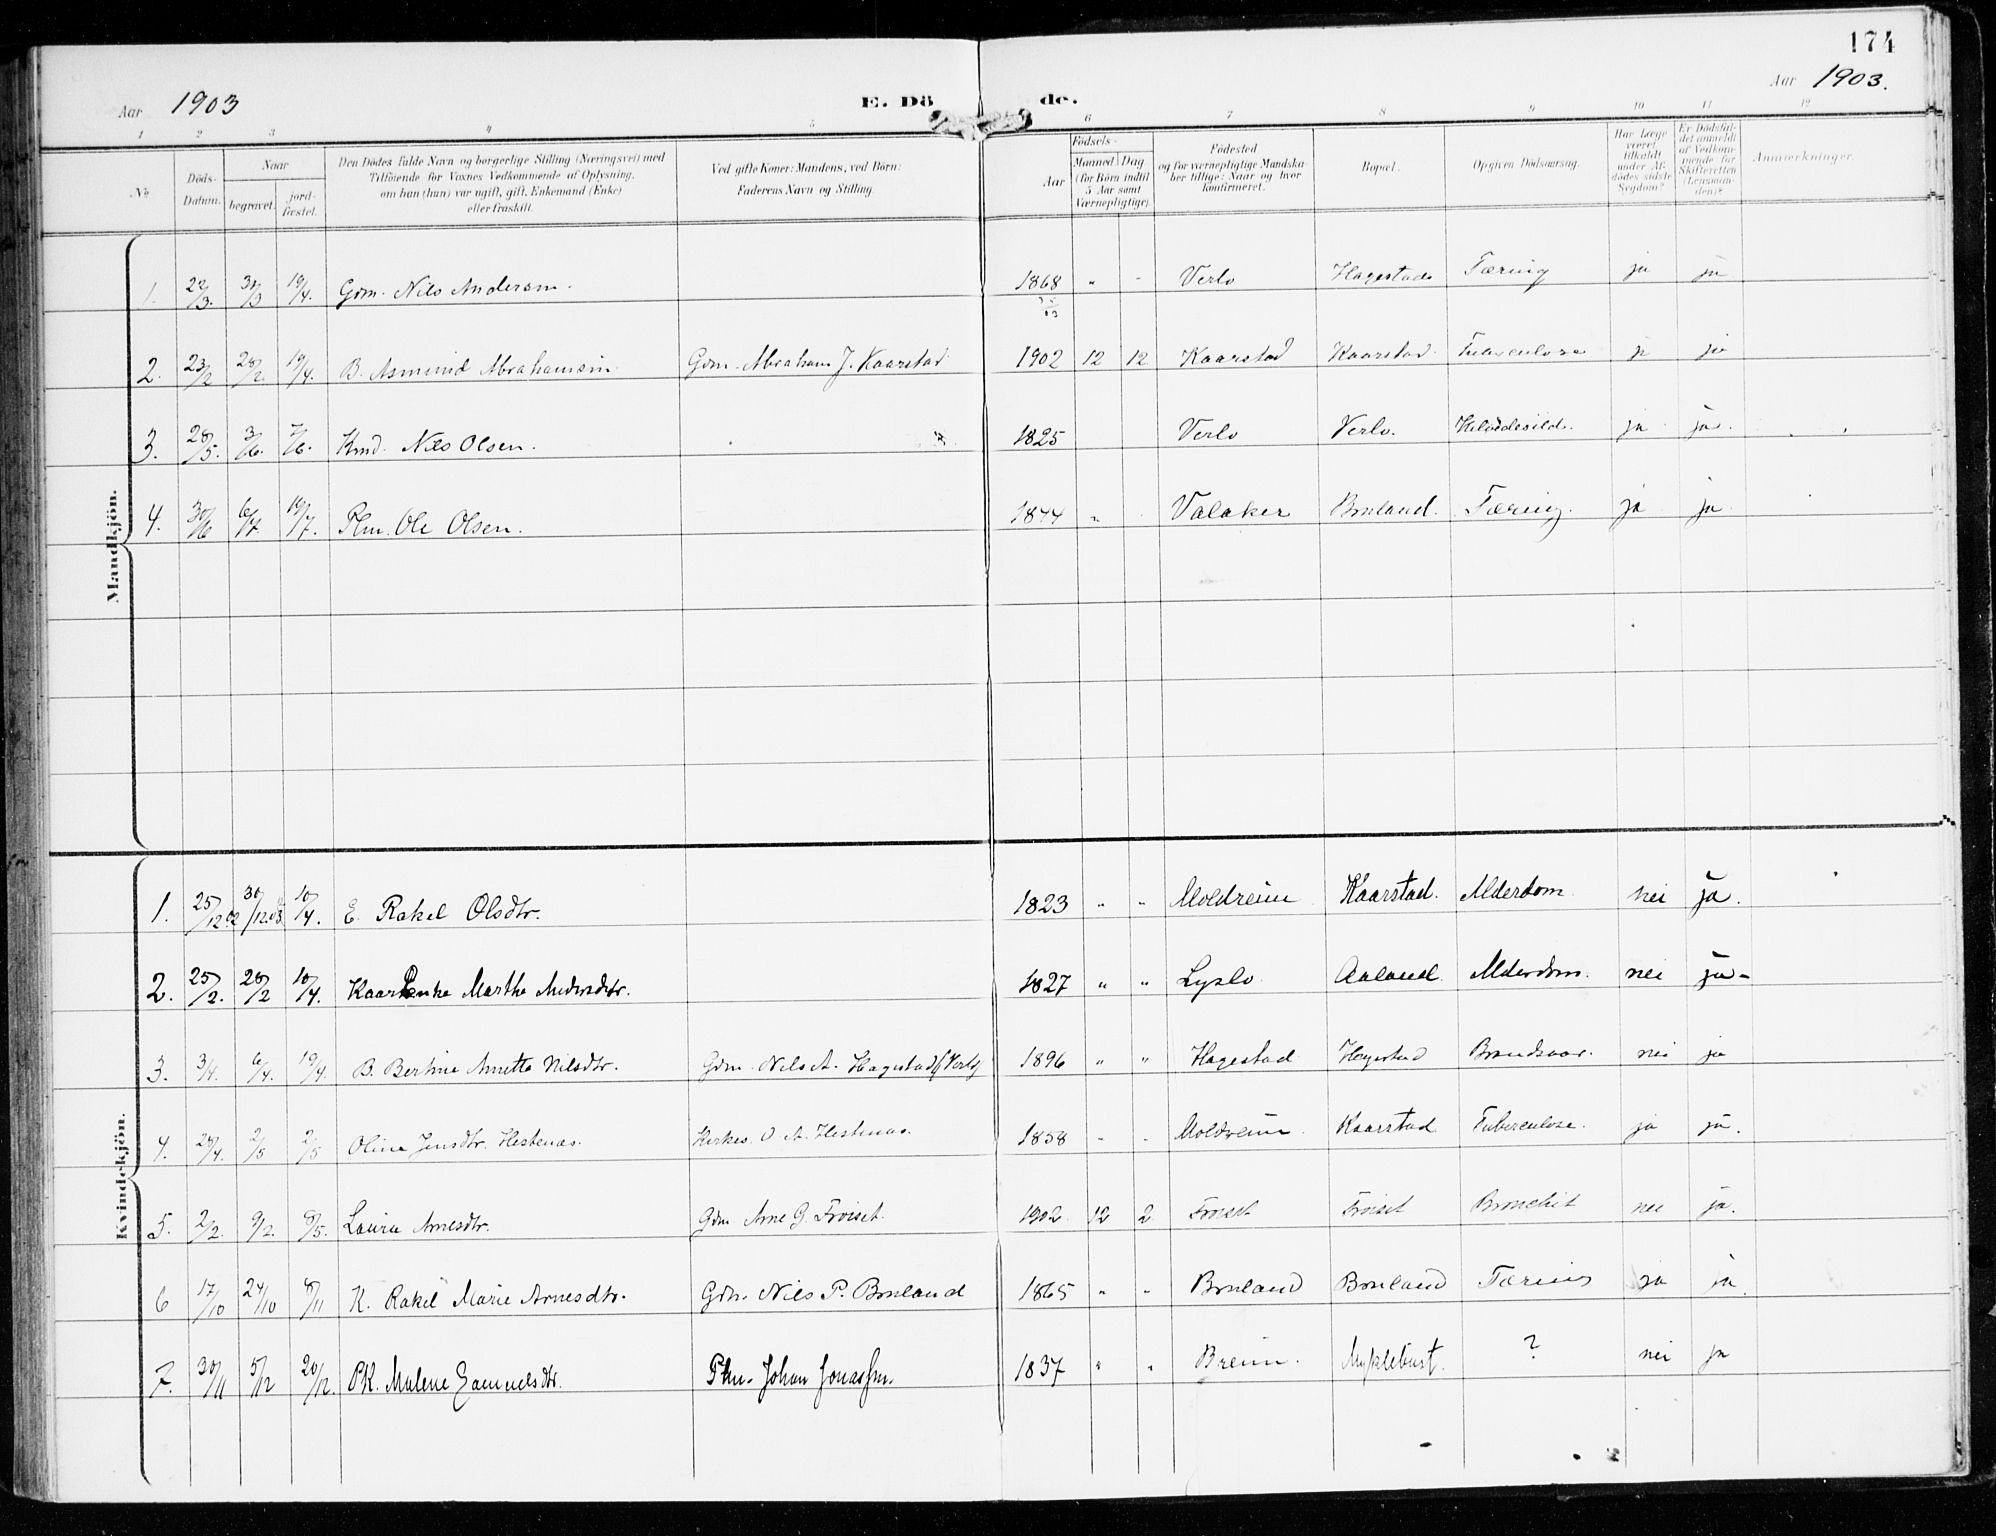 174
Aar 1903 E. Dö de. Aar 1903.
1 2 3 4 5 6 7 8 9 10 11 12
No
Döds-Datum.
Naar
begravet.
jord-fæstet.
Den Dödes fulde Navn og borgerlige Stilling (Næringsvei) med
Tilföiende for Voxnes Vedkommende af Oplysning,
om han (hun) var ugift, gift, Enkemand (Enke)
eller fraskilt.
Ved gifte Koner: Mandens, ved Börn:
Faderens Navn og Stilling.
Födsels-
Aar
Maaned Dag
(for Börn indtil
5 Aar samt
Værnepligtige).
Födested
og for værnepligtige Mandska-
ber tillige: Naar og hvor
konfirmeret.
Bopæl.
Opgiven Dödsaarsag.
Har Læge
været
tilkaldt
under Af-
dödes sidste
Sygdom?
Er Dödsfal-
det anmeldt
af Vedkom-
mende for
Skifteretten
(Lensman-
den)?
Anmærkninger.
Mandkjön.
1. 22/3. 30/3 19/4. Gdm. Nils Andersen. 1868 " - Verlo Hagestad Tæring ja ja
2. 23/2 28/2. 19/4. B. Asmund Abrahamsen. Gdm. Abraham J. Kaarstad 1902 12 12 Kaarstad Kaarstad. Tuberculose ja ja
3. 28/5. 3/6. 7/6. Kmd. Nils Olsen. 1825 Verlo Verlo. ja ja.
4. 30/6 6/7. 19/7. Plm. Ole Olsen. 1844 " Valaker Bruland. Tæring. ja ja
Kvindekjön.
1. 25/12.02 30/12.03. 10/4. E. Rakel Olsdtr. 1823 " " Moldreim Kaarstad. Alderdom nei ja.
2. 25/2. 28/2 10/4. Marthe Andersdtr. 1827 " " Lyslo Aaland. Alderdom. nei ja-
3. 3/4. 6/4. 19/4. B. Bertine Anette Nilsdtr. Gdm. Nils A. Hagestad (Verlo) 1896 " " Hagestad Hagestad Brandsaar. nei ja
4. 28/4. 2/5 2/5 Oline Jensdtr. Hestenæs. Kirkes. O. A. Hestenæs. 1858 " " Moldreim Kaarstad Tuberculose. ja ja.
5. 2/2. 9/2. 8/5. Laura Arnesdtr. Gdm. Arne G. Froiset. 1902 12 2 Froiset Froiset Bronchit nei ja.
6 17/10 24/10 8/11 K. Rakel Marie Arnesdtr. Gdm. Nils P. Bruland 1865 " " Bruland Bruland Tæring ja ja.
7. 30/11 5/12 20/12. PK. Malene Samuelsdtr. Plm. Johan Jonassen. 1837 " " Breim. Myklebust. ? nei ja